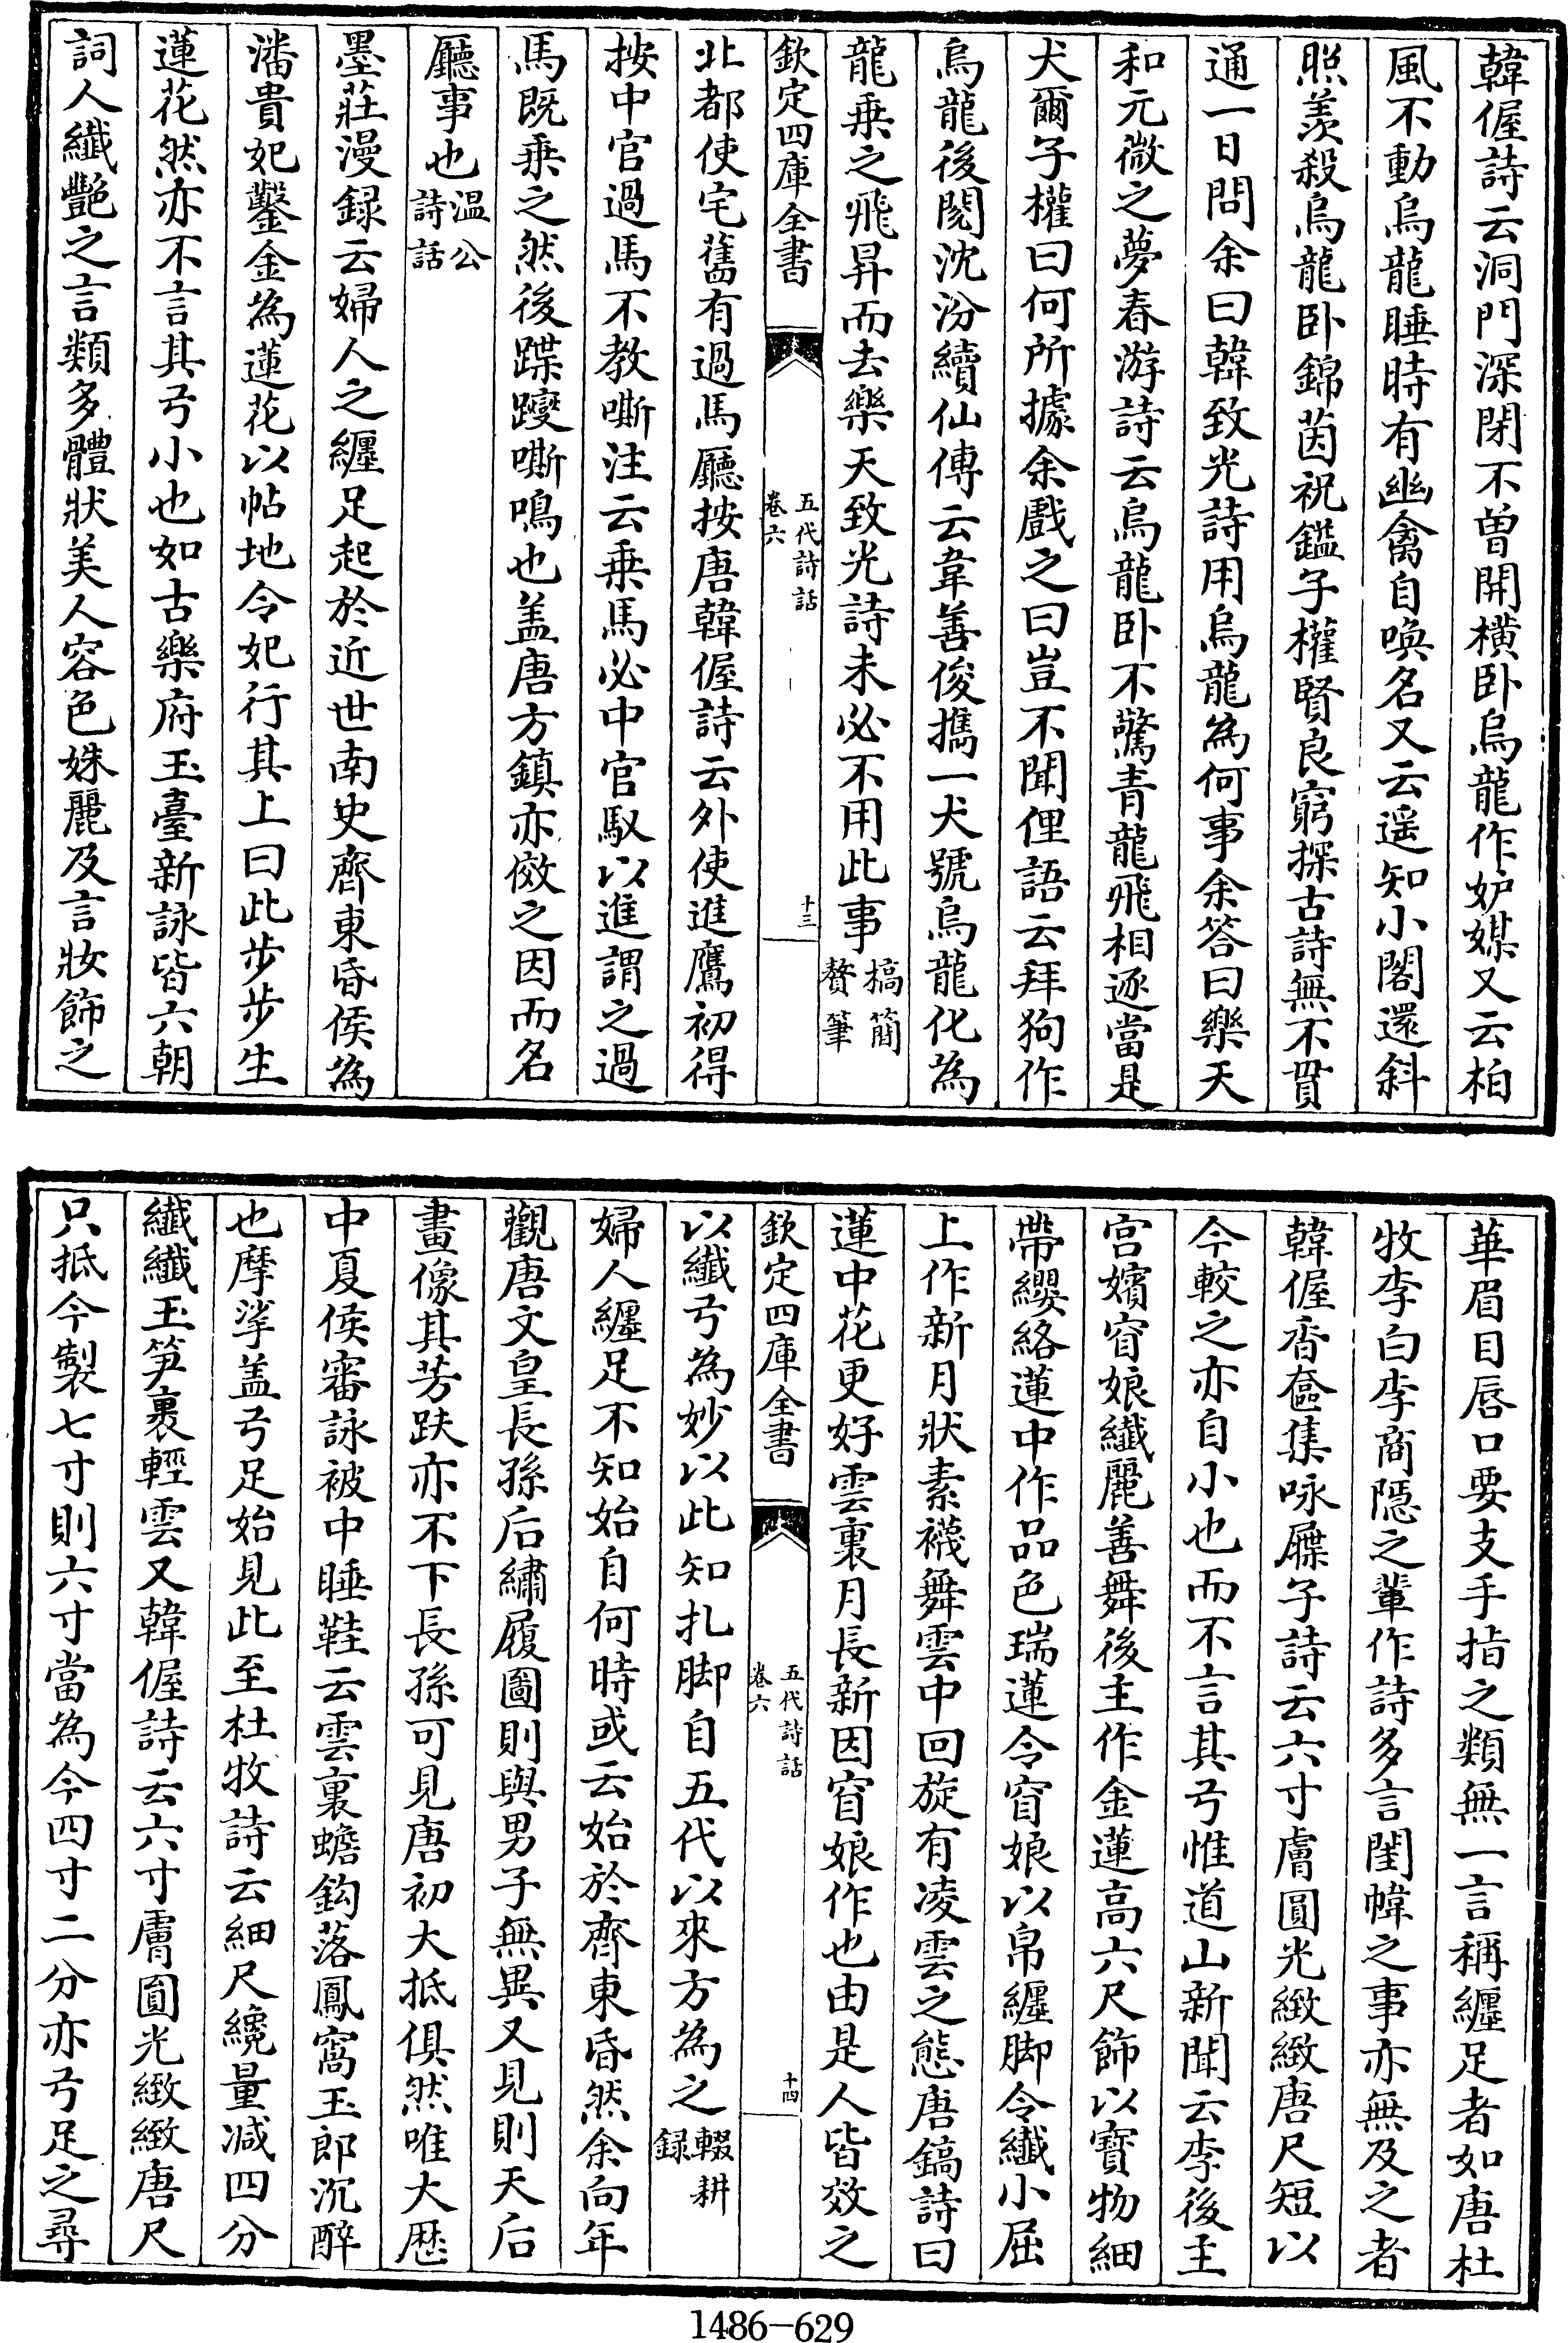 韓偓詩云洞門深閉不曽開横卧烏龍作妒媒又云柏
風不動烏龍睡時有幽禽自喚名又云遥知小閣還斜
照羨殺烏龍卧錦茵祝鑑子權賢良窮探古詩無不貫
通一日問余曰韓致光詩用烏龍為何事余答曰樂天
和元微之夢春游詩云烏龍卧不驚青龍飛相逐當是
犬爾子權曰何所據余戲之曰豈不聞俚語云拜狗作
烏龍後閱沈汾續仙傳云韋善俊攜一犬號烏龍化為
龍乗之飛昇而去樂天致光詩未必不用此事槁簡贅筆
欽定四庫全書
五代詩話
卷六
十三
北都使宅舊有過馬廳按唐韓偓詩云外使進鷹初得
按中官過馬不教嘶注云乗馬必中官馭以進謂之過
馬既乗之然後蹀躞嘶鳴也盖唐方鎮亦傚之因而名
廳事也温公詩話
墨莊漫録云婦人之纒足起於近世南史齊東昏侯為
潘貴妃鑿金為蓮花以帖地令妃行其上曰此步步生
蓮花然亦不言其弓小也如古樂府玉臺新詠皆六朝
詞人纎艷之言類多體狀美人容色姝麗及言妝飾之
華眉目唇口要支手指之類無一言稱纒足者如唐杜
牧李白李商隱之輩作詩多言閨幃之事亦無及之者
韓偓香奩集咏屧子詩云六寸膚圓光緻緻唐尺短以
今較之亦自小也而不言其弓惟道山新聞云李後主
宫嬪窅娘纎麗善舞後主作金蓮高六尺飾以寳物細
帶纓絡蓮中作品色瑞蓮令窅娘以帛纒脚令纎小屈
上作新月狀素襪舞雲中回旋有凌雲之態唐鎬詩曰
蓮中花更好雲裏月長新因窅娘作也由是人皆效之
欽定四庫全書
五代詩話
卷六
十四
以纎弓為妙以此知扎脚自五代以來方為之輟耕録
婦人纒足不知始自何時或云始於齊東昏然余向年
觀唐文皇長孫后繡履圖則與男子無異又見則天后
畫像其芳趺亦不下長孫可見唐初大抵俱然唯大厯
中夏侯審詠被中睡鞋云雲裏蟾鈎落鳳窩玉郎沉醉
也摩挲盖弓足始見此至杜牧詩云細尺纔量减四分
纎纎玉笋裹輕雲又韓偓詩云六寸膚圓光緻緻唐尺
只抵今製七寸則六寸當為今四寸二分亦弓足之尋
1486-629